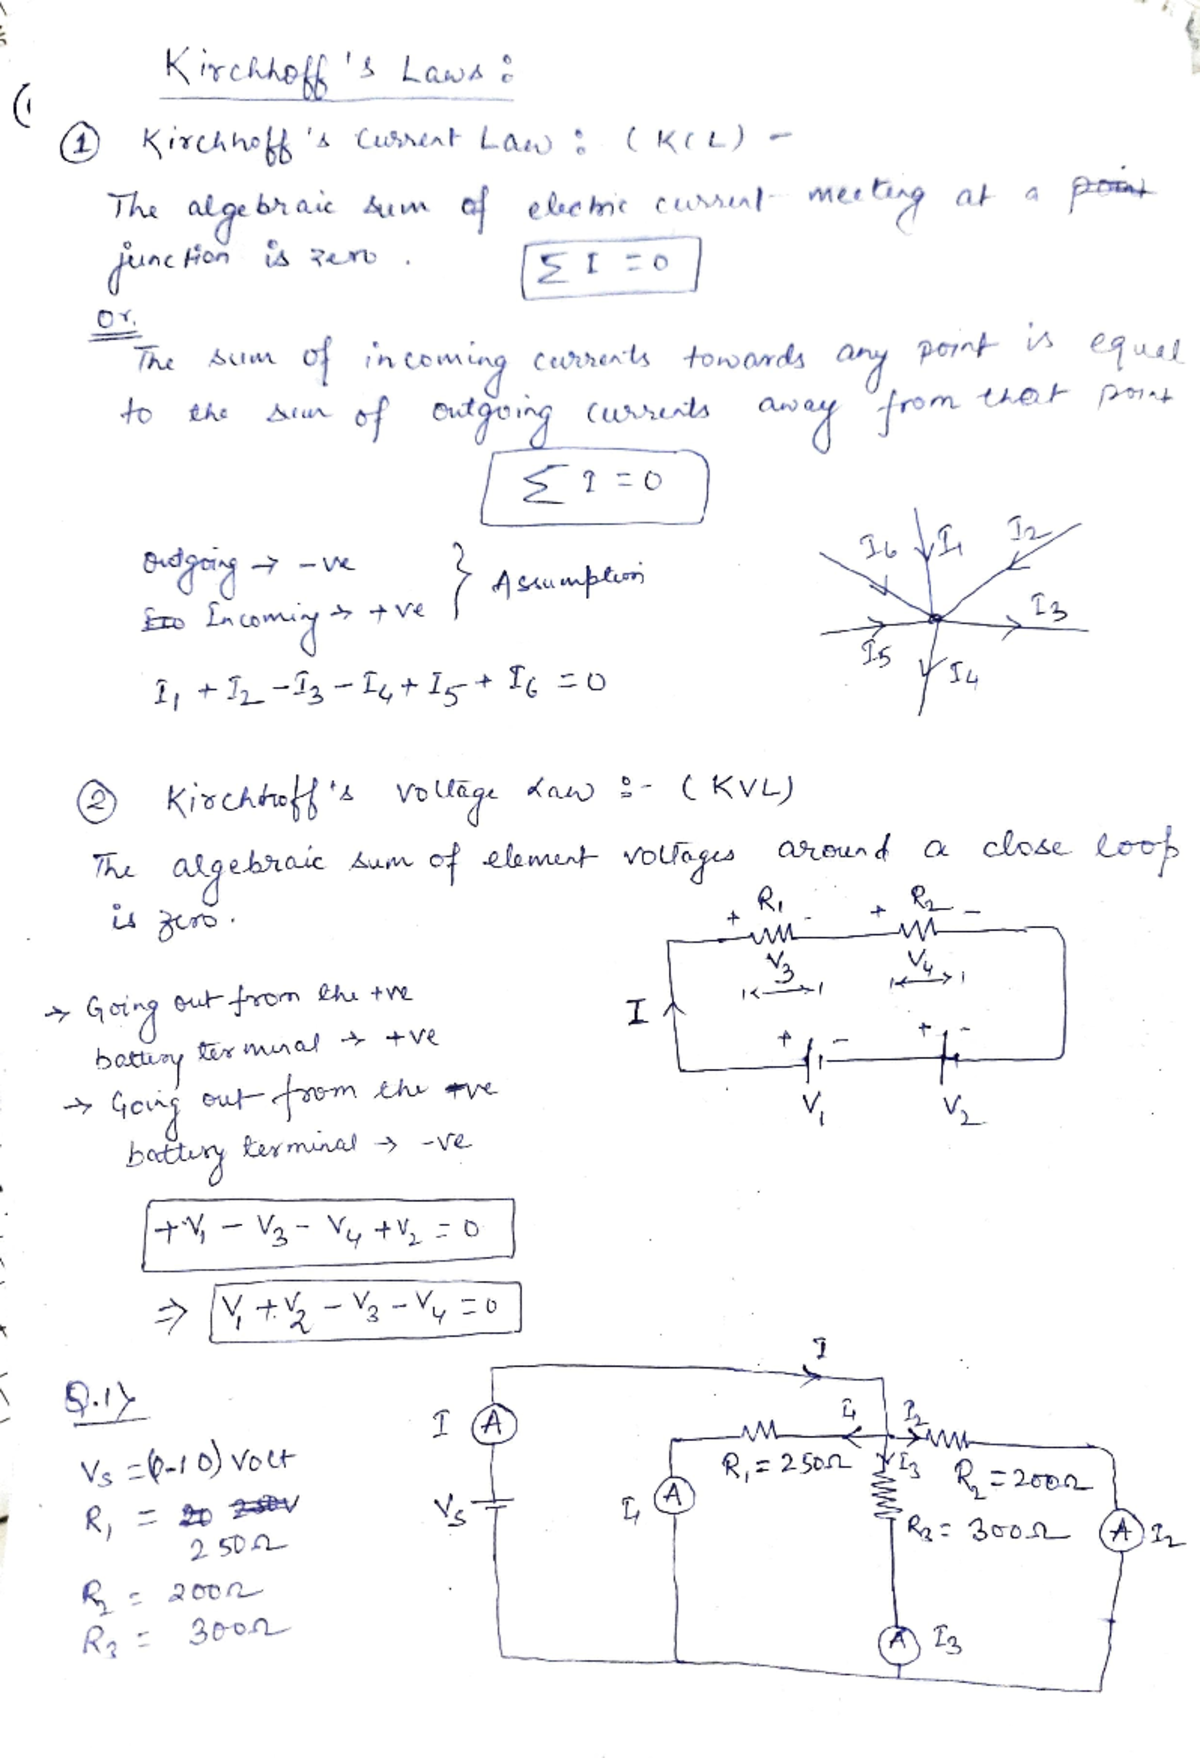 Kirchhoff's Laws:
① Kirchhoff's Current Law: (KCL) -
The algebraic sum of electric current meeting at a point
junction is zero.
Σ I = 0
Or,
The sum of incoming currents towards any point is equal
to the sum of outgoing currents away from that point
Σ I = 0
Outgoing → -ve
Incoming → +ve } Assumption
I₁ + I₂ - I₃ - I₄ + I₅ + I₆ = 0
I₆ I₁ I₂
I₃
I₅ I₄
② Kirchhoff's Voltage Law :- (KVL)
The algebraic sum of element voltages around a close loop
is zero.
+ R₁ - + R₂ -
V₃ V₄
I
+ - + -
V₁ V₂
→ Going out from the +ve
battery terminal → +ve
→ Going out from the -ve
battery terminal → -ve
+V₁ - V₃ - V₄ + V₂ = 0
⇒ V₁ + V₂ - V₃ - V₄ = 0
Q.1)
Vs = (0-10) Volt
R₁ = 20 250V
250Ω
R₂ = 200Ω
R₃ = 300Ω
I
I A
I₁ I₂
R₁ = 250Ω I₃ R₂ = 200Ω
Vs
I₁ A
R₃ = 300Ω A I₂
A I₃